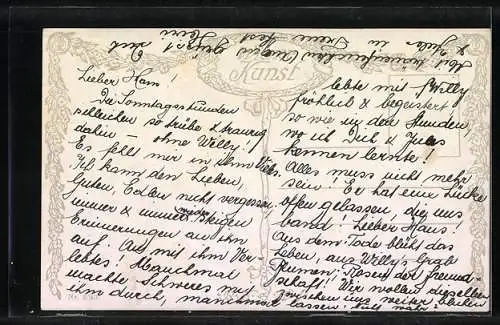 Lieber Hans!
Die Sonntagsstunden
schleichen so trübe & traurig
dahin – ohne Willy!
Es fehlt mir in ihm Viel.
Ich kann den Lieben,
Guten, Edlen nicht vergessen,
immer & immer wieder steigen
Erinnerungen an ihn
auf. An mit ihm Ver-
lebtes! Manchmal
machte Schweres mit
ihm durch, manchmal
lebte mit Willy
fröhlich & begeistert
so wie in den Stunden,
wo ich Dich & Jules
kennen lernte!
Alles muss nicht mehr
sein! Er hat eine Lücke
offen gelassen, die uns
band! Lieber Hans!
Aus dem Tode blüht das
Leben, aus Willys Grab
Blumen, Rosen der Freund-
schaft! Wir wollen dieselben
zwischen uns weiter blühen
lassen! Nicht wahr?
Mit
& Jules in Treue fest
grüsst Dich
Heini
Kunst